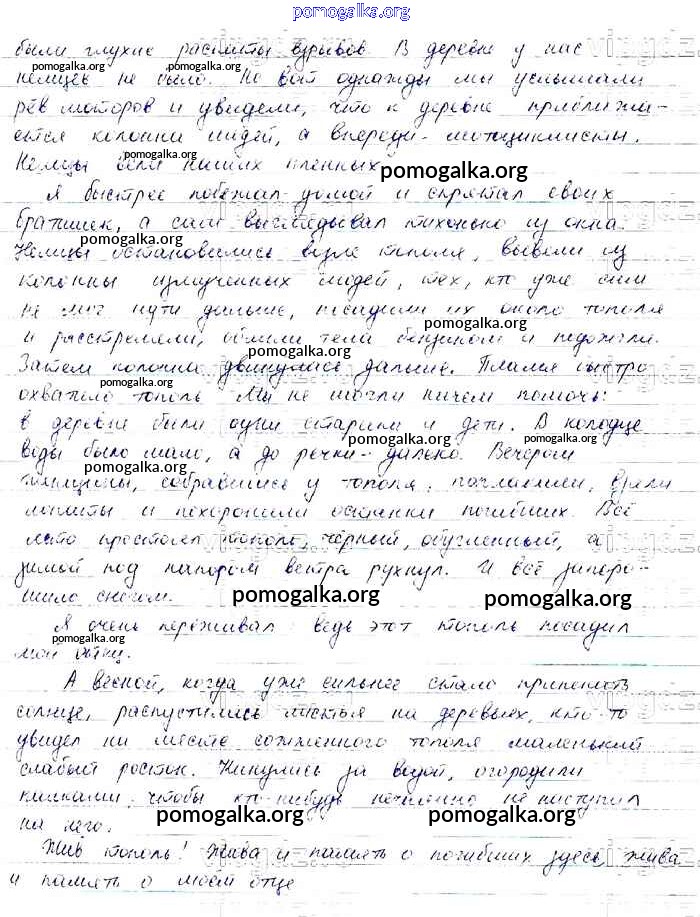 pomogalka.org
были глухие раскаты взрывов. В деревне у нас
немцев не было. Но вот однажды мы услышали
рёв моторов и увидели, что к деревне приближа-
ется колонна людей, а впереди - мотоциклисты.
Немцы вели наших пленных.
Я быстрее побежал домой и спрятал своих
братишек, а сам выглядывал тихонько из окна.
Немцы остановились возле тополя, вывели из
колонны измученных людей, тех, кто уже сам
не мог идти дальше, посадили их около тополя
и расстреляли, облили тела бензином и подожгли.
Затем колонна двинулась дальше. Пламя быстро
охватило тополь. Мы не могли ничем помочь:
в деревне были одни старики и дети. В колодце
воды было мало, а до речки - далеко. Вечером
женщины, собравшись у тополя, поплакали, взяли
лопаты и похоронили останки погибших. Всё
лето простоял тополь, чёрный, обугленный, а
зимой под напором ветра рухнул. И всё запоро-
шило снегом.
Я очень переживал: ведь этот тополь посадил
мой отец.
А весной, когда уже сильнее стало припекать
солнце, распустились листья на деревьях, кто-то
увидел на месте сожженного тополя маленький
слабый росток. Кинулись за водой, огородили
колышками, чтобы кто-нибудь нечаянно не наступил
на него.
Жив тополь! Жива и память о погибших здесь, жива
и память о моём отце